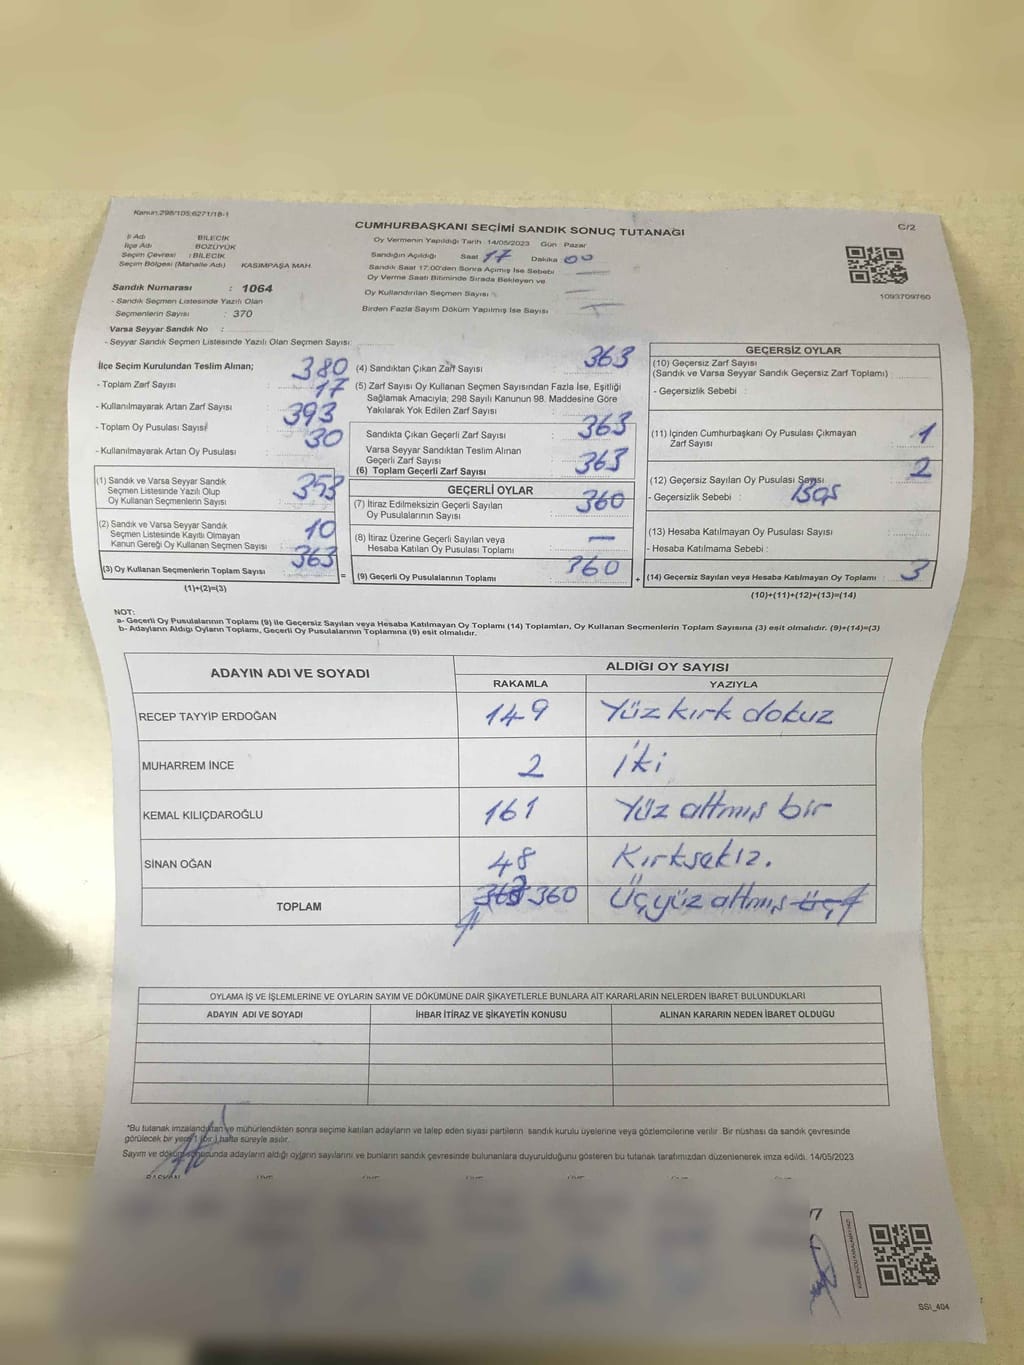 Kanun:298/105;6271/18-1
CUMHURBAŞKANI SEÇİMİ SANDIK SONUÇ TUTANAĞI
C/2
İl Adı BİLECİK
İlçe Adı BOZÜYÜK
Seçim Çevresi : BİLECİK
Seçim Bölgesi (Mahalle Adı) KASIMPAŞA MAH.
Oy Vermenin Yapıldığı Tarih 14/05/2023 Gün : Pazar
Sandığın Açıldığı Saat 17 Dakika 00
Sandık Saat 17:00'den Sonra Açmış İse Sebebi
Oy Verme Saati Bitiminde Sırada Bekleyen ve
Oy Kullandırılan Seçmen Sayısı
Birden Fazla Sayım Döküm Yapılmış İse Sayısı
1093709760
Sandık Numarası : 1064
- Sandık Seçmen Listesinde Yazılı Olan
Seçmenlerin Sayısı : 370
Varsa Seyyar Sandık No :
- Seyyar Sandık Seçmen Listesinde Yazılı Olan Seçmen Sayısı
İlçe Seçim Kurulundan Teslim Alınan;
- Toplam Zarf Sayısı 380
- Kullanılmayarak Artan Zarf Sayısı 17
- Toplam Oy Pusulası Sayısı 393
- Kullanılmayarak Artan Oy Pusulası 30
(1) Sandık ve Varsa Seyyar Sandık
Seçmen Listesinde Yazılı Olup
Oy Kullanan Seçmenlerin Sayısı 353
(2) Sandık ve Varsa Seyyar Sandık
Seçmen Listesinde Kayıtlı Olmayan
Kanun Gereği Oy Kullanan Seçmen Sayısı 10
(3) Oy Kullanan Seçmenlerin Toplam Sayısı 363
(1)+(2)=(3)
=
(4) Sandıktan Çıkan Zarf Sayısı 363
(5) Zarf Sayısı Oy Kullanan Seçmen Sayısından Fazla İse, Eşitliği
Sağlamak Amacıyla, 298 Sayılı Kanunun 98. Maddesine Göre
Yakılarak Yok Edilen Zarf Sayısı
Sandıkta Çıkan Geçerli Zarf Sayısı 363
Varsa Seyyar Sandıktan Teslim Alınan
Geçerli Zarf Sayısı
(6) Toplam Geçerli Zarf Sayısı 363
GEÇERLİ OYLAR
(7) İtiraz Edilmeksizin Geçerli Sayılan
Oy Pusulalarının Sayısı 360
(8) İtiraz Üzerine Geçerli Sayılan veya
Hesaba Katılan Oy Pusulası Toplamı —
(9) Geçerli Oy Pusulalarının Toplamı 360
+
GEÇERSİZ OYLAR
(10) Geçersiz Zarf Sayısı
(Sandık ve Varsa Seyyar Sandık Geçersiz Zarf Toplamı)
- Geçersizlik Sebebi :
(11) İçinden Cumhurbaşkanı Oy Pusulası Çıkmayan
Zarf Sayısı 1
(12) Geçersiz Sayılan Oy Pusulası Sayısı 2
- Geçersizlik Sebebi : Boş
(13) Hesaba Katılmayan Oy Pusulası Sayısı
- Hesaba Katılmama Sebebi :
(14) Geçersiz Sayılan veya Hesaba Katılmayan Oy Toplamı 3
(10)+(11)+(12)+(13)=(14)
NOT:
a- Geçerli Oy Pusulalarının Toplamı (9) ile Geçersiz Sayılan veya Hesaba Katılmayan Oy Toplamı (14) Toplamları, Oy Kullanan Seçmenlerin Toplam Sayısına (3) eşit olmalıdır. (9)+(14)=(3)
b- Adayların Aldığı Oyların Toplamı, Geçerli Oy Pusulalarının Toplamına (9) eşit olmalıdır.
ADAYIN ADI VE SOYADI
ALDIĞI OY SAYISI
RAKAMLA YAZIYLA
RECEP TAYYİP ERDOĞAN 149 Yüz kırk dokuz
MUHARREM İNCE 2 İki
KEMAL KILIÇDAROĞLU 161 Yüz altmış bir
SİNAN OĞAN 48 Kırksekiz.
TOPLAM 363 360 Üçyüz altmış üç
OYLAMA İŞ VE İŞLEMLERİNE VE OYLARIN SAYIM VE DÖKÜMÜNE DAİR ŞİKAYETLERLE BUNLARA AİT KARARLARIN NELERDEN İBARET BULUNDUKLARI
ADAYIN ADI VE SOYADI İHBAR İTİRAZ VE ŞİKAYETİN KONUSU ALINAN KARARIN NEDEN İBARET OLDUĞU
*Bu tutanak imzalandıktan ve mühürlendikten sonra seçime katılan adayların ve talep eden siyasi partilerin sandık kurulu üyelerine veya gözlemcilerine verilir. Bir nüshası da sandık çevresinde
görülecek bir yere 1 (bir) hafta süreyle asılır.
Sayım ve döküm sonucunda adayların aldığı oyların sayılarını ve bunların sandık çevresinde bulunanlara duyurulduğunu gösteren bu tutanak tarafımızdan düzenlenerek imza edildi. 14/05/2023
BAŞKAN ÜYE ÜYE ÜYE ÜYE ÜYE ÜYE
SSI_404